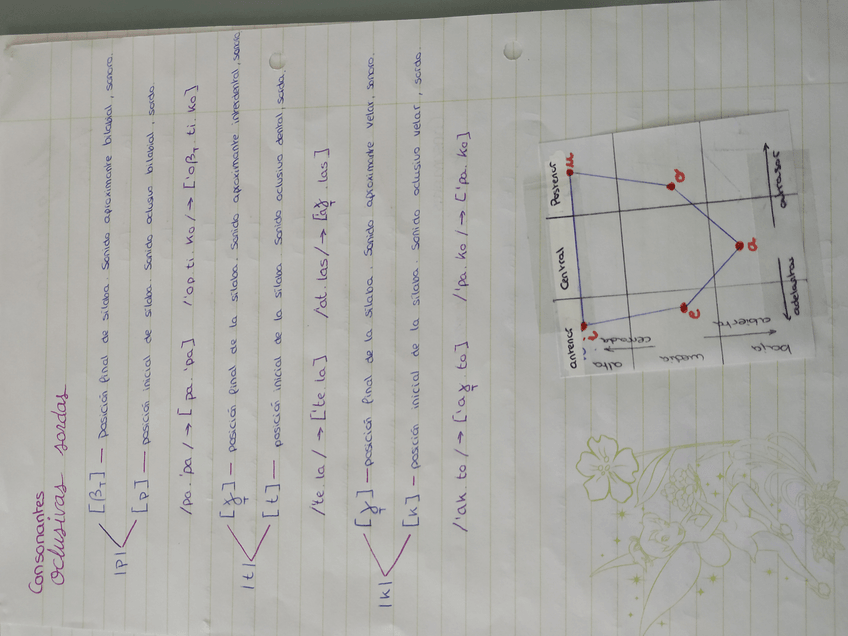 Consonantes
oclusivas sordas
|p|
[β̞] — posición final de sílaba. Sonido aproximante bilabial, sonoro.
[p] — posición inicial de sílaba. Sonido oclusivo bilabial, sordo.
/pa.'pa/ → [pa.'pa] /'op.ti.ko/ → ['oβ̞.ti.ko]
|t|
[ɣ̞] — posición final de la sílaba. Sonido aproximante interdental, sonoro
[t] — posición inicial de la sílaba Sonido oclusivo dental, sordo.
/'te.la/ → ['te.la] /at.las/ → [aɣ̞.las]
|k|
[ɣ̞] — posición final de la sílaba. Sonido aproximante velar, sonoro.
[k] — posición inicial de la sílaba. Sonido oclusivo velar, sordo.
/'ak.to/ → ['aɣ̞.to] /'pa.ko/ → ['pa.ko]
anterior Central Posterior
alta
cerrada
media
abierta
baja
i
u
e
o
a
adelantras
atrasar